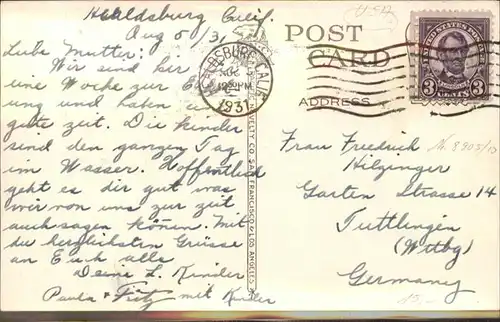 Healdsburg Calif.
Aug 5/31
Lube Mutter:
Wir sind hier
eine Woche zur
ung und haben
gute zeit. Die kinder
sind den ganzen Tag
im Wasser. Hoffentlich
geht es dir gut was
wir von uns zur zeit
auch sagen können. Mit
du herzlichsten Grüsse
an Euch alle
Deine L. Kinder
Paula & Fritz mit Kinder
POST
CARD
ADDRESS
HEALDSBURG, CALIF.
AUG
1931
NOVELTY CO SAN FRANCISCO & LOS ANGELES
UNITED STATES POSTAGE
3 CENTS 3
USA
Frau Friedrich
Hilzinger
Garten Strasse 14
Tuttlingen
(Wttbg)
Germany
15,-